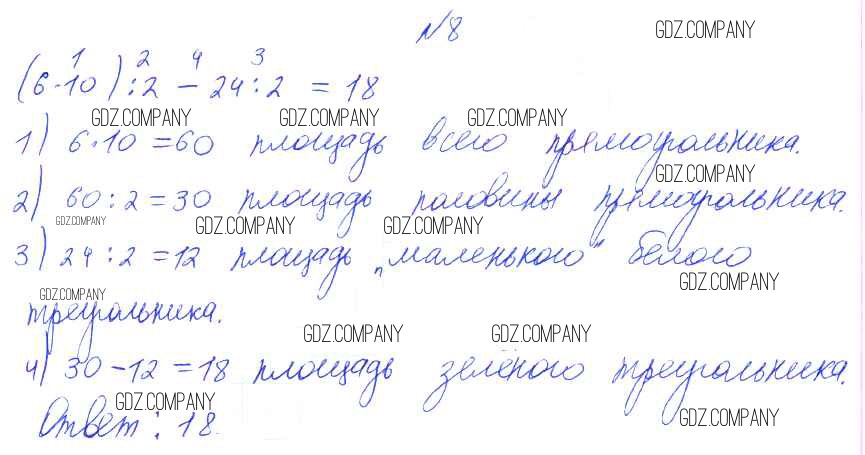 №8 GDZ.COMPANY
1 2 4 3
(6·10):2 - 24:2 = 18
GDZ.COMPANY GDZ.COMPANY GDZ.COMPANY
1) 6·10=60 площадь всего прямоугольника.
GDZ.COMPANY
2) 60:2=30 площадь половины прямоугольника.
GDZ.COMPANY GDZ.COMPANY GDZ.COMPANY
3) 24:2=12 площадь „маленького" белого
GDZ.COMPANY
GDZ.COMPANY
треугольника.
GDZ.COMPANY GDZ.COMPANY
4) 30-12=18 площадь зелёного треугольника.
GDZ.COMPANY
Ответ: 18.
GDZ.COMPANY